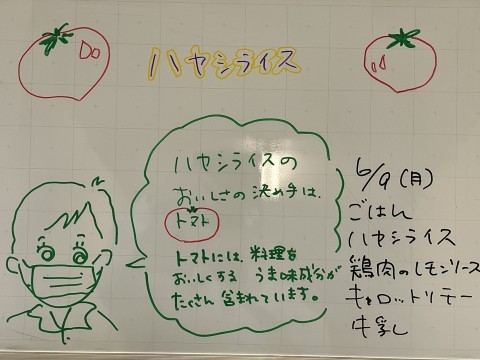 ハヤシライス
ハヤシライスの
おいしさの決め手は、
トマト
トマトには、料理を
おいしくする うま味成分が
たくさん含まれています。
6/9(月)
ごはん
ハヤシライス
鶏肉のレモンソース
キャロットソテー
牛乳